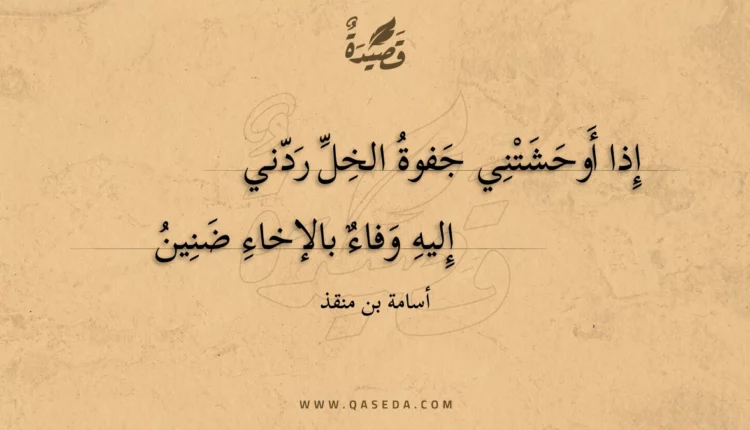 قَصِيدَةٌ
إِذا أَوحَشَتْنِي جَفوةُ الخِلِّ رَدّني
إِليهِ وَفاءٌ بالإخاءِ ضَنِينُ
أسامة بن منقذ
WWW.QASEDA.COM